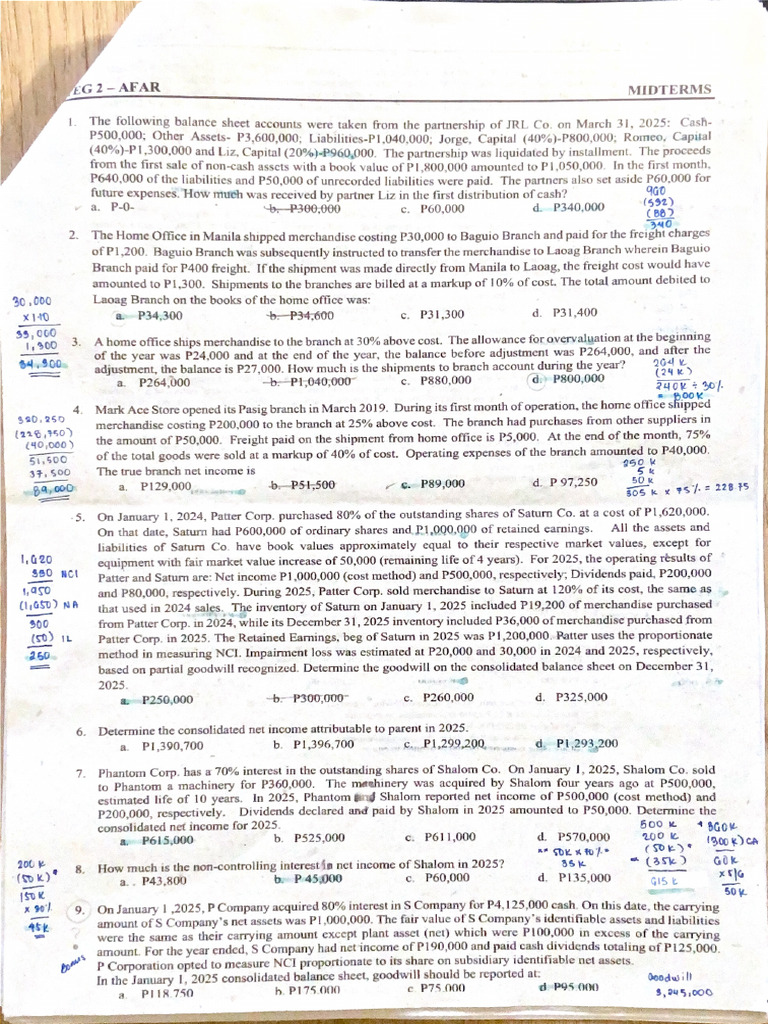 EG 2 – AFAR
MIDTERMS
1. The following balance sheet accounts were taken from the partnership of JRL Co. on March 31, 2025: Cash-
P500,000; Other Assets- P3,600,000; Liabilities-P1,040,000; Jorge, Capital (40%)-P800,000; Romeo, Capital
(40%)-P1,300,000 and Liz, Capital (20%)-P960,000. The partnership was liquidated by installment. The proceeds
from the first sale of non-cash assets with a book value of P1,800,000 amounted to P1,050,000. In the first month,
P640,000 of the liabilities and P50,000 of unrecorded liabilities were paid. The partners also set aside P60,000 for
future expenses. How much was received by partner Liz in the first distribution of cash?
a. P-0- b. P300,000 c. P60,000 d. P340,000
960
(592)
(88)
340
2. The Home Office in Manila shipped merchandise costing P30,000 to Baguio Branch and paid for the freight charges
of P1,200. Baguio Branch was subsequently instructed to transfer the merchandise to Laoag Branch wherein Baguio
Branch paid for P400 freight. If the shipment was made directly from Manila to Laoag, the freight cost would have
amounted to P1,300. Shipments to the branches are billed at a markup of 10% of cost. The total amount debited to
Laoag Branch on the books of the home office was:
a. P34,300 b. P34,600 c. P31,300 d. P31,400
30,000
x 110
33,000
1,300
34,300
3. A home office ships merchandise to the branch at 30% above cost. The allowance for overvaluation at the beginning
of the year was P24,000 and at the end of the year, the balance before adjustment was P264,000, and after the
adjustment, the balance is P27,000. How much is the shipments to branch account during the year?
a. P264,000 b. P1,040,000 c. P880,000 d. P800,000
264 K
(24 K)
240K ÷ 30%
= 800K
4. Mark Ace Store opened its Pasig branch in March 2019. During its first month of operation, the home office shipped
merchandise costing P200,000 to the branch at 25% above cost. The branch had purchases from other suppliers in
the amount of P50,000. Freight paid on the shipment from home office is P5,000. At the end of the month, 75%
of the total goods were sold at a markup of 40% of cost. Operating expenses of the branch amounted to P40,000.
The true branch net income is
a. P129,000 b. P51,500 c. P89,000 d. P 97,250
320,250
(228,750)
(40,000)
51,500
37,500
89,000
250 K
5 K
50 K
305 K x 75% = 228 75
5. On January 1, 2024, Patter Corp. purchased 80% of the outstanding shares of Saturn Co. at a cost of P1,620,000.
On that date, Saturn had P600,000 of ordinary shares and P1,000,000 of retained earnings. All the assets and
liabilities of Saturn Co. have book values approximately equal to their respective market values, except for
equipment with fair market value increase of 50,000 (remaining life of 4 years). For 2025, the operating results of
Patter and Saturn are: Net income P1,000,000 (cost method) and P500,000, respectively; Dividends paid, P200,000
and P80,000, respectively. During 2025, Patter Corp. sold merchandise to Saturn at 120% of its cost, the same as
that used in 2024 sales. The inventory of Saturn on January 1, 2025 included P19,200 of merchandise purchased
from Patter Corp. in 2024, while its December 31, 2025 inventory included P36,000 of merchandise purchased from
Patter Corp. in 2025. The Retained Earnings, beg of Saturn in 2025 was P1,200,000. Patter uses the proportionate
method in measuring NCI. Impairment loss was estimated at P20,000 and 30,000 in 2024 and 2025, respectively,
based on partial goodwill recognized. Determine the goodwill on the consolidated balance sheet on December 31,
2025.
a. P250,000 b. P300,000 c. P260,000 d. P325,000
1,620
330 NCI
1,950
(1,650) NA
300
(50) IL
250
6. Determine the consolidated net income attributable to parent in 2025.
a. P1,390,700 b. P1,396,700 c. P1,299,200 d. P1,293,200
7. Phantom Corp. has a 70% interest in the outstanding shares of Shalom Co. On January 1, 2025, Shalom Co. sold
to Phantom a machinery for P360,000. The machinery was acquired by Shalom four years ago at P500,000,
estimated life of 10 years. In 2025, Phantom and Shalom reported net income of P500,000 (cost method) and
P200,000, respectively. Dividends declared and paid by Shalom in 2025 amounted to P50,000. Determine the
consolidated net income for 2025.
a. P615,000 b. P525,000 c. P611,000 d. P570,000
500 K
200 K
(50 K) *
= (35K)
615 K
** 50K x 70% =
35K
* 360K
(300 K) CA
60K
x 5/6
50K
8. How much is the non-controlling interest in net income of Shalom in 2025?
a. P43,800 b. P 45,000 c. P60,000 d. P135,000
200 K
(50 K) *
150K
x 30%
45K
9. On January 1 ,2025, P Company acquired 80% interest in S Company for P4,125,000 cash. On this date, the carrying
amount of S Company's net assets was P1,000,000. The fair value of S Company's identifiable assets and liabilities
were the same as their carrying amount except plant asset (net) which were P100,000 in excess of the carrying
amount. For the year ended, S Company had net income of P190,000 and paid cash dividends totaling of P125,000.
P Corporation opted to measure NCI proportionate to its share on subsidiary identifiable net assets.
In the January 1, 2025 consolidated balance sheet, goodwill should be reported at:
a. P118,750 b. P175,000 c. P75,000 d. P95,000
?
Bonus
Goodwill
3,245,000